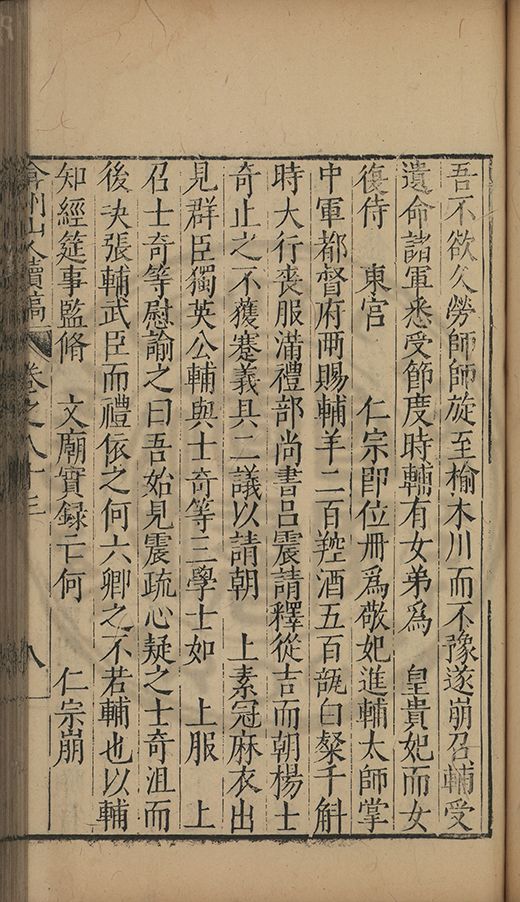 吾不欲久勞師師旋至榆木川而不豫遂崩召輔受
遺命諸軍悉受節度時輔有女弟為　皇貴妃而女
復侍　東宮　　仁宗即位冊為敬妃進輔太師掌
中軍都督府兩賜輔羊二百羫酒五百瓻白粲千斛
時大行喪服滿禮部尚書呂震請釋從吉而朝楊士
奇止之不獲蹇義具二議以請朝　上素冠麻衣出
見群臣獨英公輔與士奇等三學士如　上服　上
召士奇等慰諭之曰吾始見震疏心疑之士奇沮而
後決張輔武臣而禮依之何六卿之不若輔也以輔
知經筵事監脩　文廟實録亡何　　仁宗崩
弇州山人續稿　卷之八十三　八